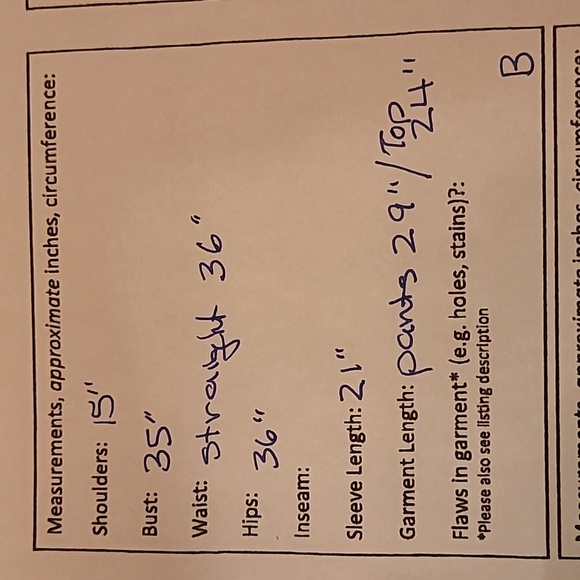 Measurements, approximate inches, circumference:
Shoulders: 15"
Bust: 35"
Waist: straight 36"
Hips: 36"
Inseam:
Sleeve Length: 21"
Garment Length: pants 29" / Top 24"
Flaws in garment* (e.g. holes, stains)?:
*Please also see listing description
B